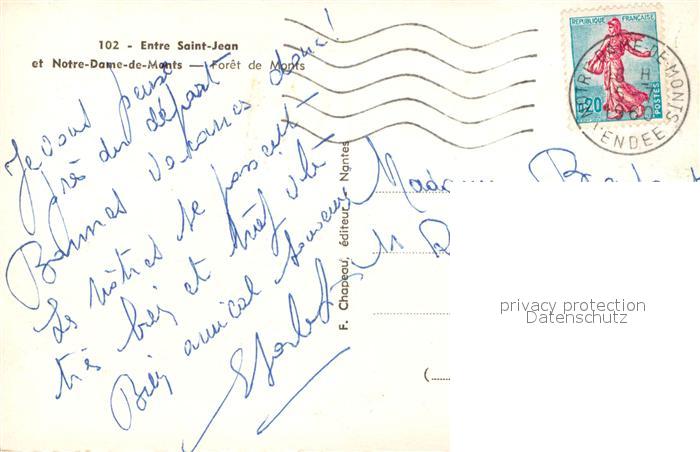 102 - Entre Saint-Jean
et Notre-Dame-de-Monts — Forêt de Monts
Je vous pense
près du départ
Bonnes vacances donc!
Les nôtres se passent
très bien et trop vite
Bien amical souvenir
F. Chapeau, éditeur - Nantes
Madame
11
(
REPUBLIQUE FRANÇAISE
0,20
POSTES
NOTRE-DAME-DE-MONTS
H
1960
VENDEE
privacy protection
Datenschutz